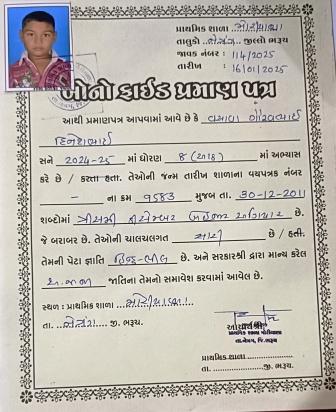 પ્રાથમિક શાળા મોરીયાણા
તાલુકો નેત્રંગ જીલ્લો ભરૂચ
જાવક નંબર : 114/2025
તારીખ : 16/01/2025
બોનોફાઈડ પ્રમાણ પત્ર
આથી પ્રમાણપત્ર આપવામાં આવે છે કે વસાવા
દિનેશભાઈ
સને 2024-25 માં ધોરણ 8 (આઠ) માં અભ્યાસ
કરે છે / કરતા હતા. તેઓની જન્મ તારીખ શાળાના વયપત્રક નંબર
- ના ક્રમ 9583 મુજબ તા. 30-12-2011
શબ્દોમાં ત્રીસમી ડીસેમ્બર બે હજાર અગિયાર છે.
જે બરાબર છે. તેઓની ચાલચલગત સારી છે / હતી.
તેમની પેટા જ્ઞાતિ હિન્દુ-ભીલ છે. અને સરકારશ્રી દ્વારા માન્ય કરેલ
અ.જ.જા જાતિના તેમનો સમાવેશ કરવામાં આવેલ છે.
સ્થળ : પ્રાથમિક શાળા મોરીયાણા
તા. નેત્રંગ જી. ભરૂચ.
આચાર્યશ્રી
પ્રાથમિક શાળા મોરીયાણા
તા.નેત્રંગ, જિ.ભરૂચ
પ્રાથમિક શાળા
તા. જી. ભરૂચ.